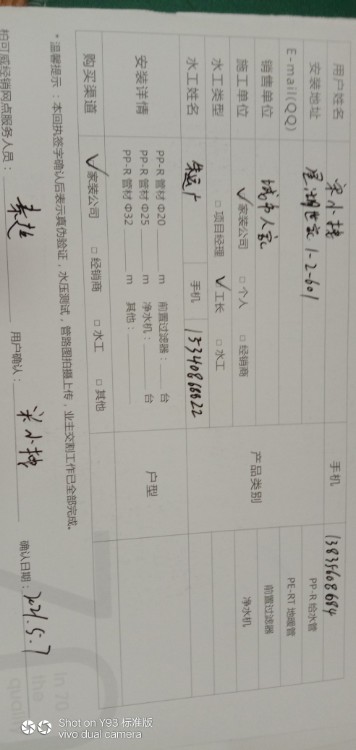 用户姓名 手机
安装地址 1-2-601 PP-R 给水管
E-mail(QQ) PE-RT 地暖管
销售单位 城市人家 产品类别 前置过滤器
施工单位 ✓家装公司 □ 个人 □ 经销商 净水机
水工类型 □ 项目经理 ✓工长 □ 水工
水工姓名 手机 15340866622
安装详情 PP-R 管材 Φ20 ____ m 前置过滤器：____ 台 户型
PP-R 管材 Φ25 ____ m 净水机：____ 台
PP-R 管材 Φ32 ____ m 其他：____
购买渠道 ✓家装公司 □ 经销商 □ 水工 □ 其他
*温馨提示：本回执签字确认后表示真伪验证，水压测试，管路图拍摄上传，业主交割工作已全部完成。
经销网点服务人员： 用户确认： 确认日期：2021.5.7
in 70
the
quality
Shot on Y93 标准版
vivo dual camera